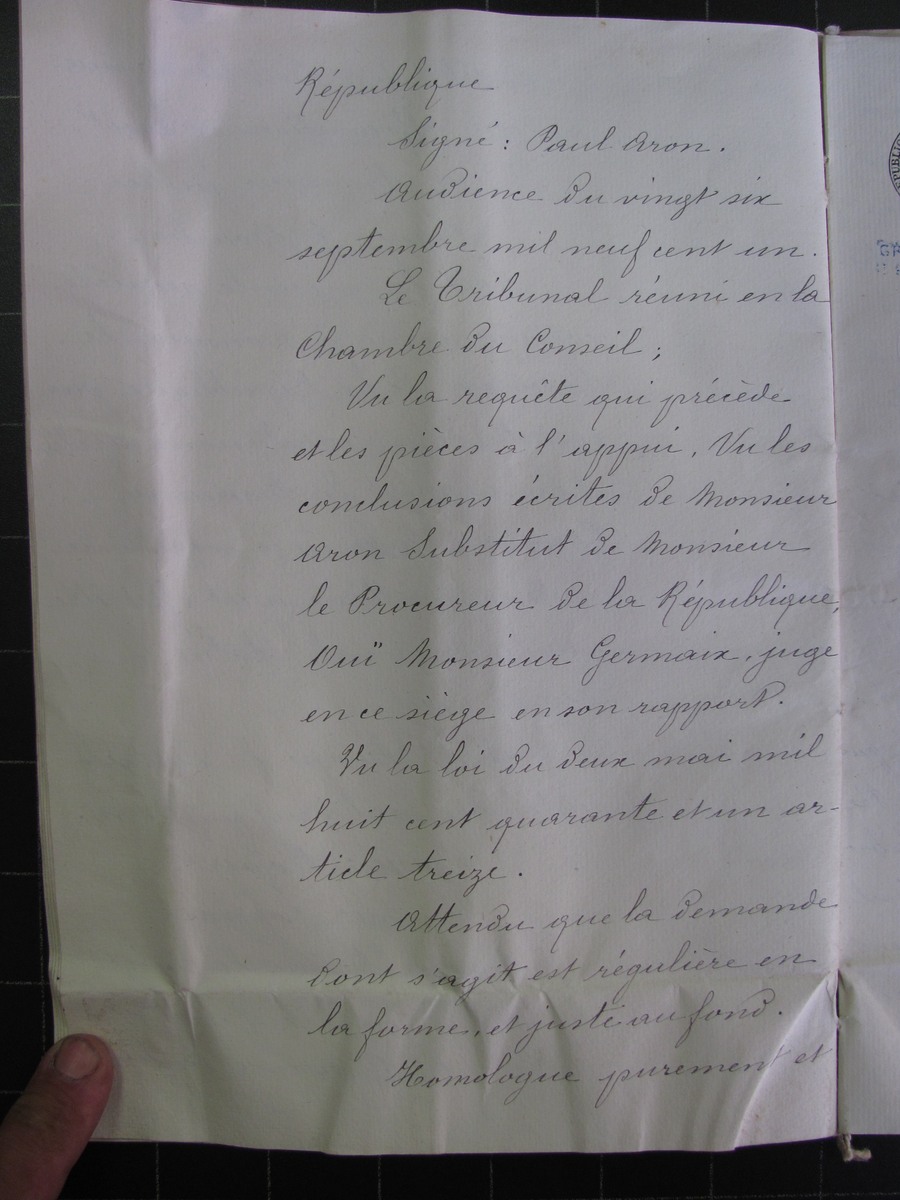 République
Signé : Paul Aron.
Audience du vingt six
septembre mil neuf cent un.
Le Tribunal réuni en la
Chambre du Conseil ;
Vu la requête qui précède
et les pièces à l'appui, Vu les
conclusions écrites de Monsieur
Aron Substitut de Monsieur
le Procureur de la République,
Ouï Monsieur Germaix, juge
en ce siège en son rapport.
Vu la loi du deux mai mil
huit cent quarante et un ar-
ticle treize.
Attendu que la demande
dont s'agit est régulière en
la forme, et juste au fond.
Homologue purement et